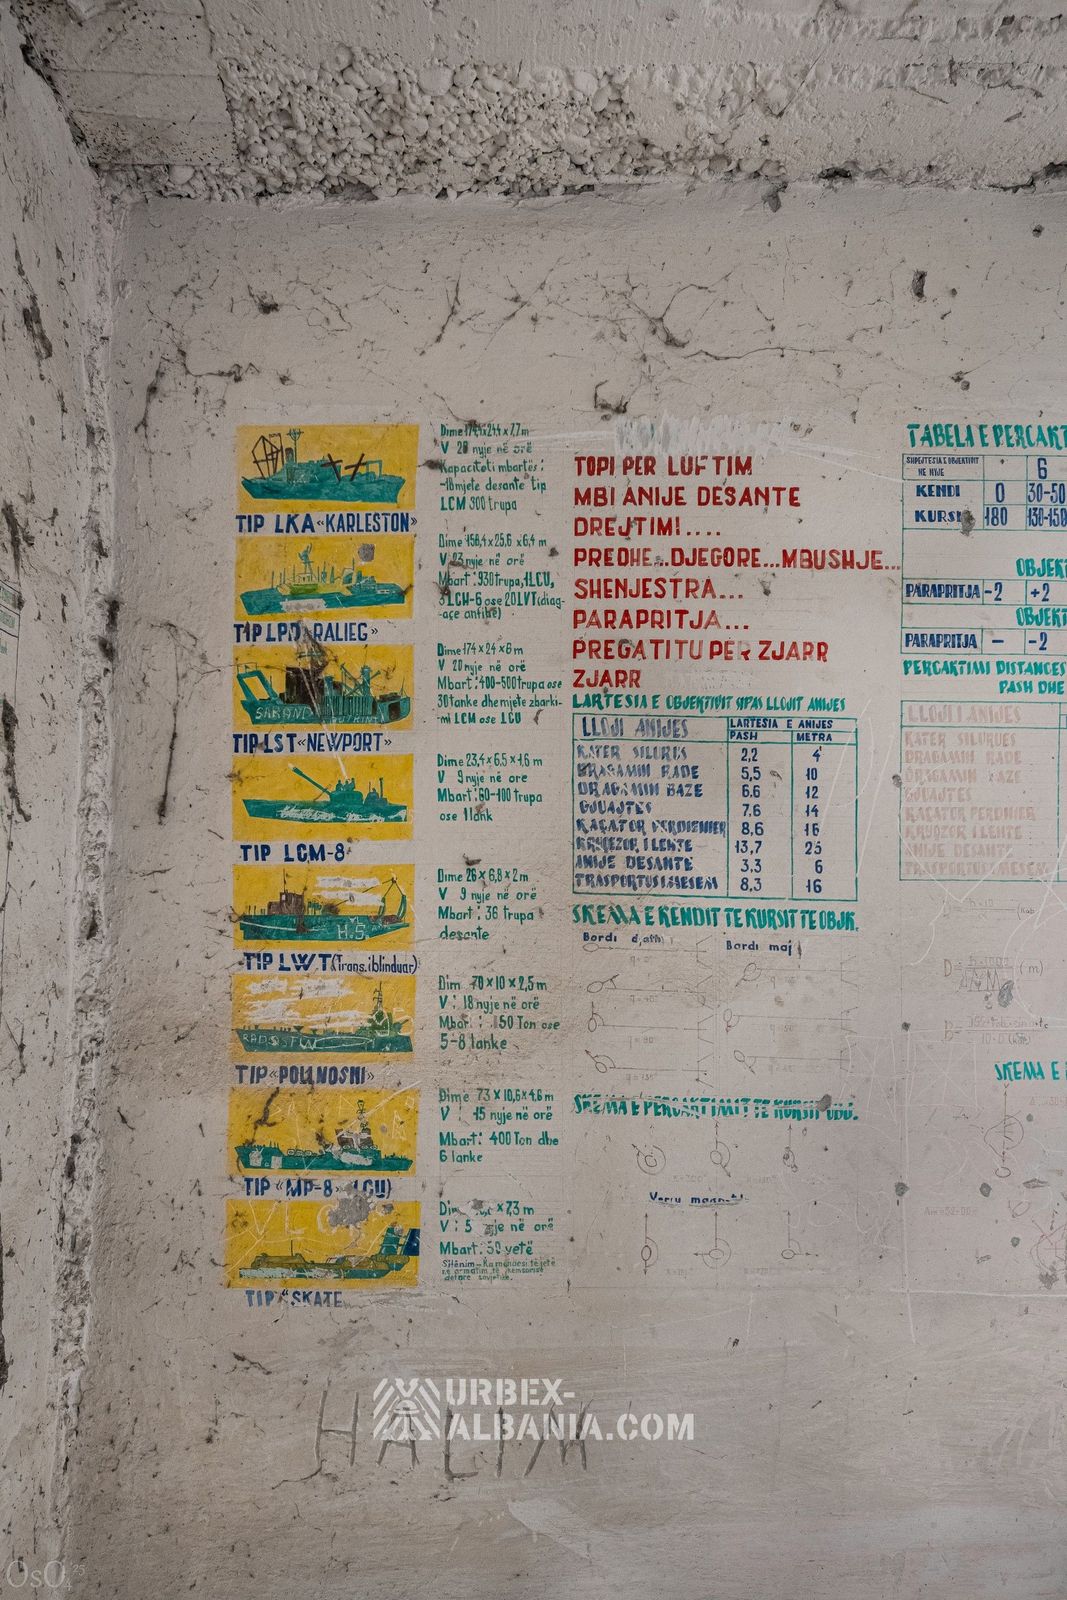 Dime 174,1x24,4 x 7,7 m
V 20 nyje në orë
Kapaciteti mbartës:
-18 mjete desante tip
LCM 300 trupa
TIP LKA «KARLESTON»
Dime 156,4 x 25,6 x 6,4 m
V 23 nyje në orë
Mbart: 930 trupa, 1LCU,
3LCM-6 ose 20LVT(diag-
TIP LPD «RALIEG»
Dime 174 x 24 x 6 m
V 20 nyje në orë
Mbart: 400-500 trupa ose
30 tanke dhe mjete zbarki-
mi LCM ose LCU
SARAND
TIP LST «NEWPORT»
Dime 23,4 x 6,5 x 1,6 m
V 9 nyje në ore
Mbart: 60-100 trupa
ose 1 tank
TIP LCM-8
Dime 26 x 6,8 x 2 m
V 9 nyje në orë
Mbart: 36 trupa
desante
H.S.
TIP LWT (Trans. i blinduar)
Dim 70 x 10 x 2,5 m
V: 18 nyje në orë
Mbar : 150 Ton ose
5-8 tanke
TIP «POLLNOSNI»
Dime 73 x 10,6 x 4,6 m
V 15 nyje në orë
Mbart: 400 Ton dhe
6 tanke
TIP «MP-8» (LCU)
x 7,3 m
V: 5 nyje në orë
Mbart: 50 vetë
VLO
TIP "SKATE
TOPI PER LUFTIM
MBI ANIJE DESANTE
DREJTIMI....
PREDHE...DJEGORE...MBUSHJE...
SHENJESTRA...
PARAPRITJA...
PREGATITU PER ZJARR
ZJARR
LARTESIA E OBJEKTIVIT SIPAS LLOJIT ANIJES
LLOJI ANIJES LARTESIA E ANIJES
PASH METRA
KATER SILURES 2,2 4
DRAGAMIN RADE 5,5 10
DRAGAMIN BAZE 6.6 12
GJUAJTES 7.6 14
8,6 16
KRYQEZOR I LEHTE 13,7 25
ANIJE DESANTE 3,3 6
TRASPORTUS I MESEM 8,3 16
SKEMA E KENDIT TE KURSIT TE OBJK.
Bordi djath Bordi majt
SKEMA E PERCAKTIMIT TE KURSIT OBJ.
TABELA E PERCAKT
SHPEJTESIA E OBJEKTIVIT NE NYJE 6
KENDI 0 30-50
KURSI 180 130-150
OBJEKT
PARAPRITJA -2 +2
OBJEKT
PARAPRITJA — -2
PERCAKTIMI DISTANCES
PASH DHE
LLOJI I ANIJES
KATER SILURUES
DRAGAMIN RADE
DRAGAMIN BAZE
GJUAJTES
KRYQZOR I LEHTE
ANIJE DESANTE
TRASPORTUES MESEM
SKEMA E
HALIM
URBEX-
ALBANIA.COM
OsO 25